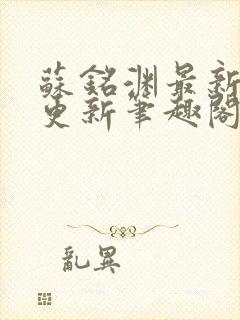 蘇銘淵最新
更新筆趣閣
亂異